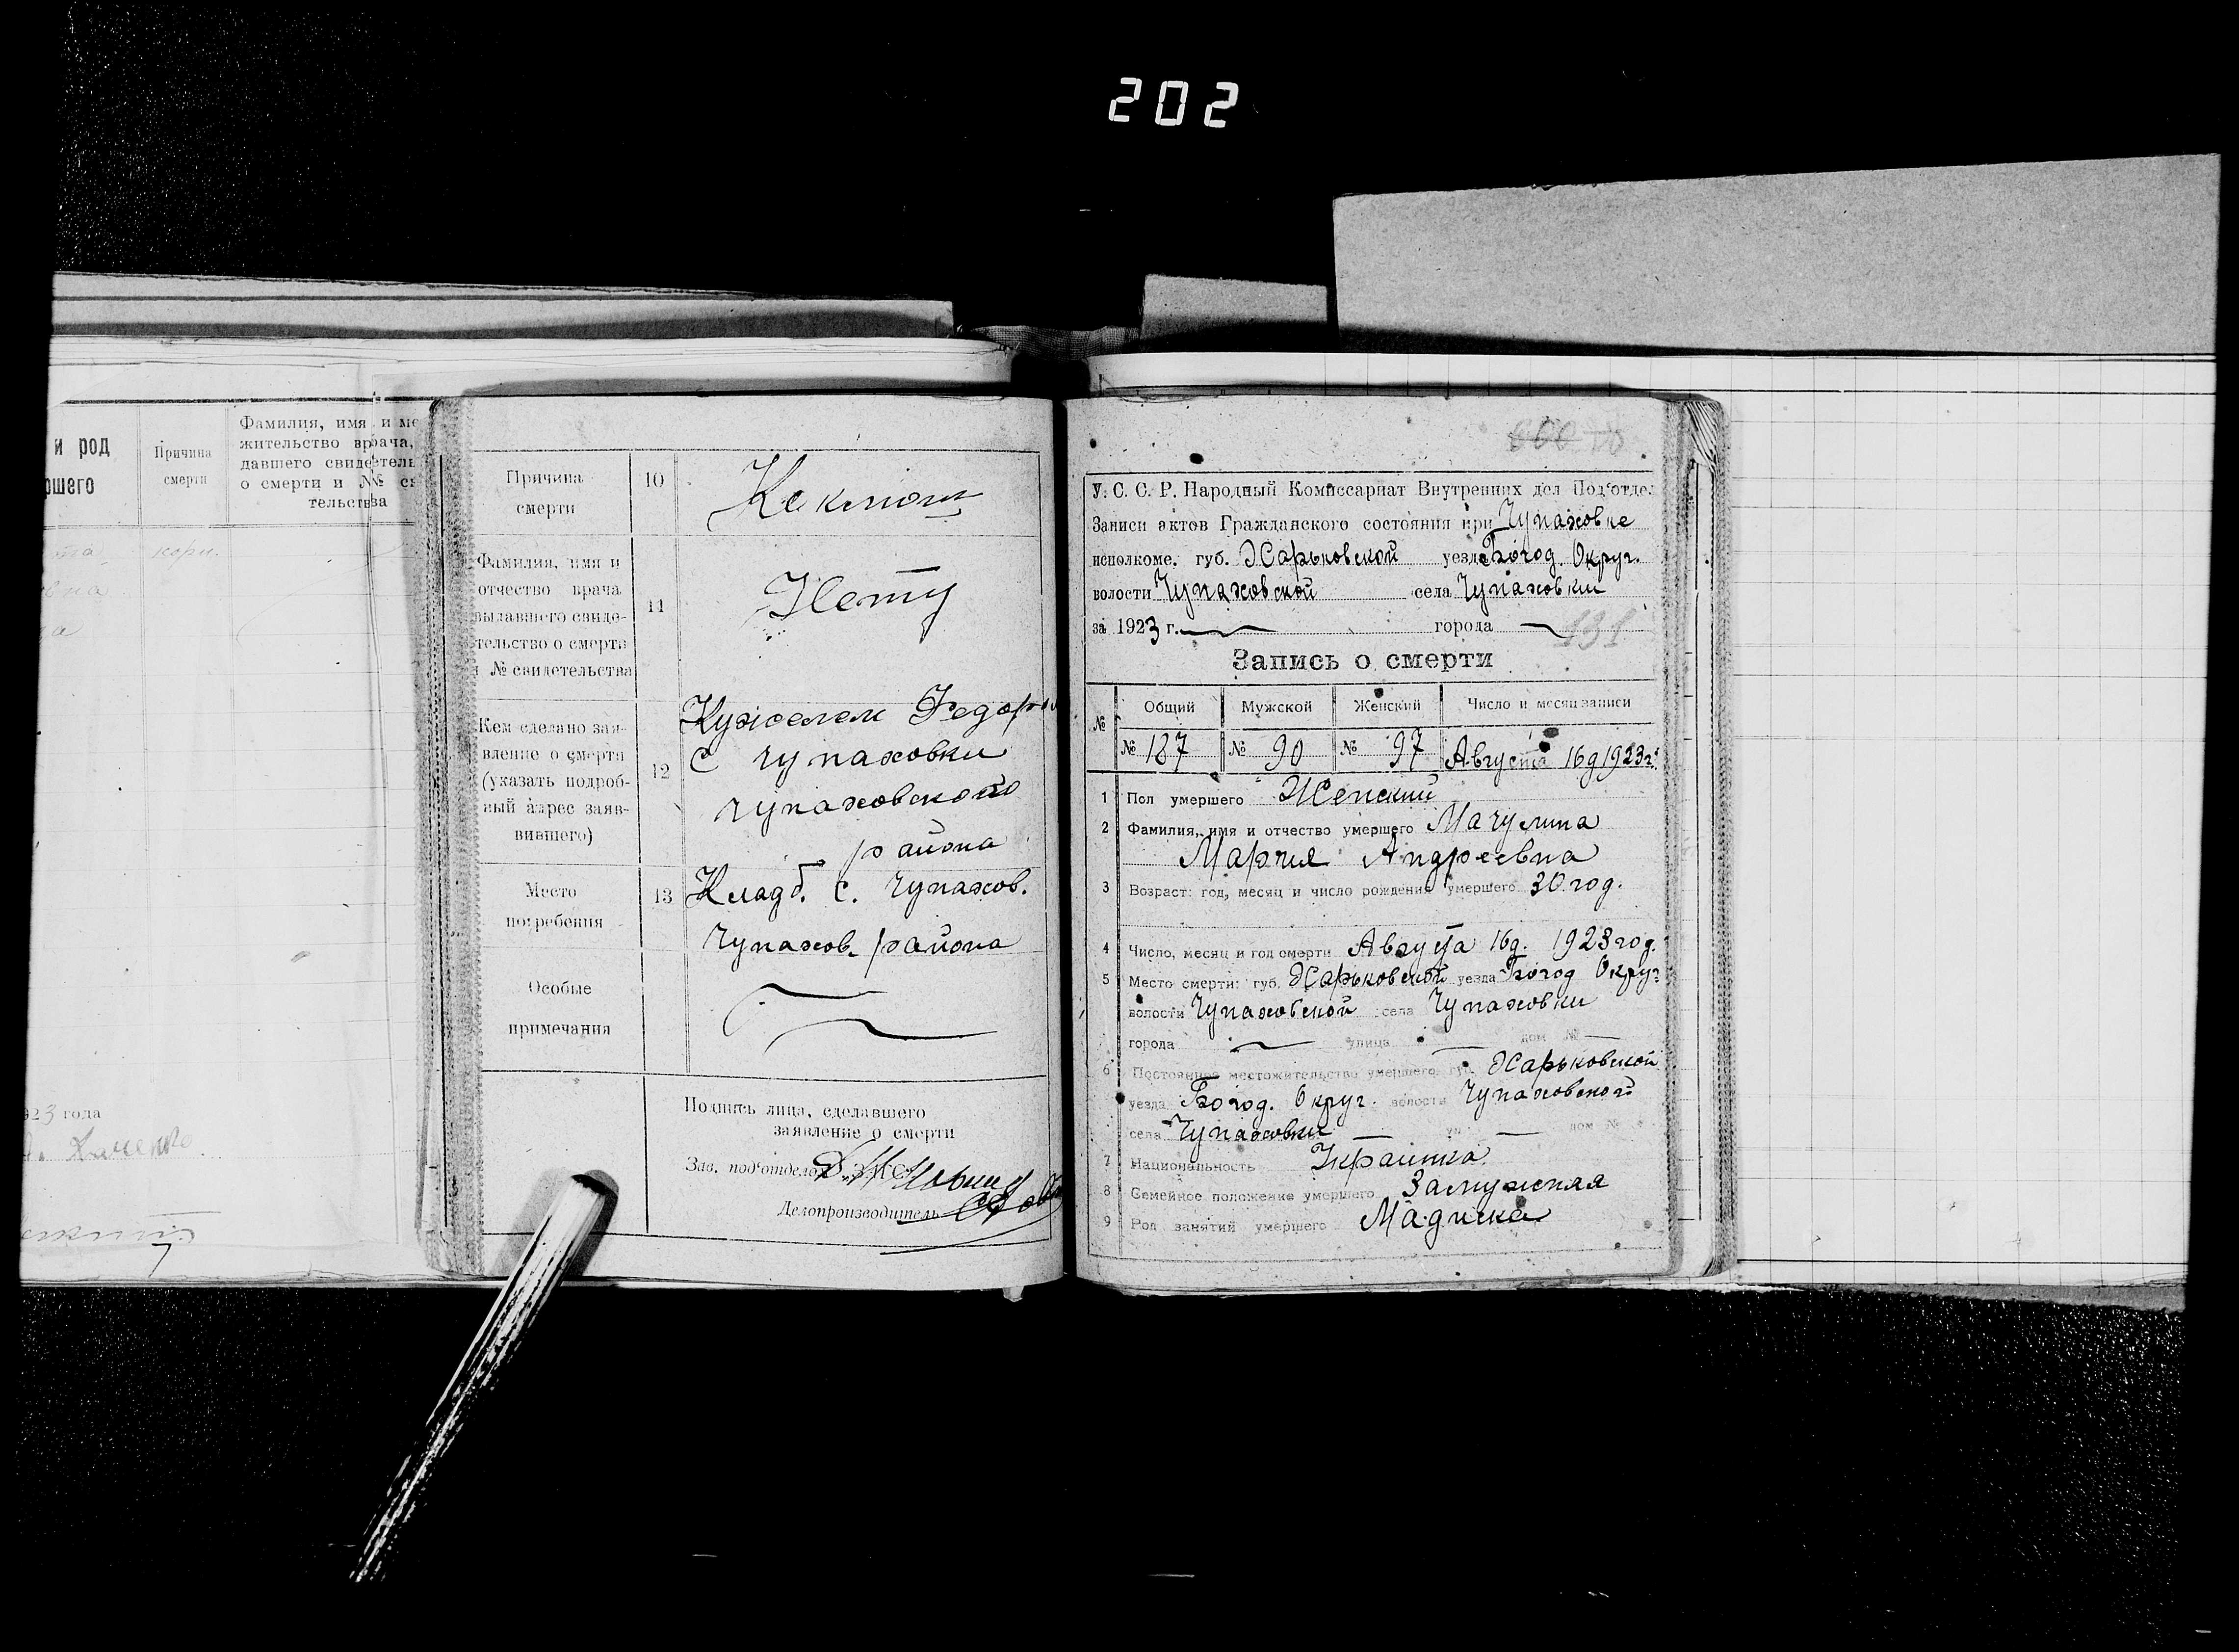 202
и род
Причина
смерти
Фамилия, имя и ме
жительство врача,
давшего свидетель
о смерти и №№ св
тельства
корн.
1923 года
Причина
смерти
10
Фамилия, имя и
отчество врача
выдавшего свиде-
тельство о смерти
и № свидетельства
11
Нету
Кем сделано зая-
вление о смерти
(указать подроб-
ный адрес заяв-
вившего)
12
Кужелем Федором
с Чупаховки
Чупаховского
района
Место
погребения
13
Кладб. с. Чупахов.
Чупахов. района
Особые
примечания
Подпись лица, сделавшего
заявление о смерти
Зав. под'отделом ЗАГС
Делопроизводитель
У. С. С. Р. Народный Комиссариат Внутренних дел Под'отдел
Записи актов Гражданского состояния при Чупаховке
исполкоме. губ. Харьковской уезда Богод. Округ.
волости Чупаховской села Чупаховки
за 1923 г. города
131
Запись о смерти
№ Общий Мужской Женский Число и месяц записи
№ 187 № 90 № 97 Августа 16д 1923 г.
1 Пол умершего Женский
2 Фамилия, имя и отчество умершего Мачулина
Мария Андреевна
3 Возраст: год, месяц и число рождения умершего 30 год.
4 Число, месяц и год смерти Августа 16д. 1923 год.
5 Место смерти: губ. Харьковской уезда Богод Округ
волости Чупаховской села Чупаховки
города улица дом №
6 Постоянное местожительство умершего: губ. Харьковской
уезда Богод. Округ. волости Чупаховской
села Чупаховки ул. дом №
7 Национальность Украинка
8 Семейное положение умершего Замужняя
9 Род занятий умершего